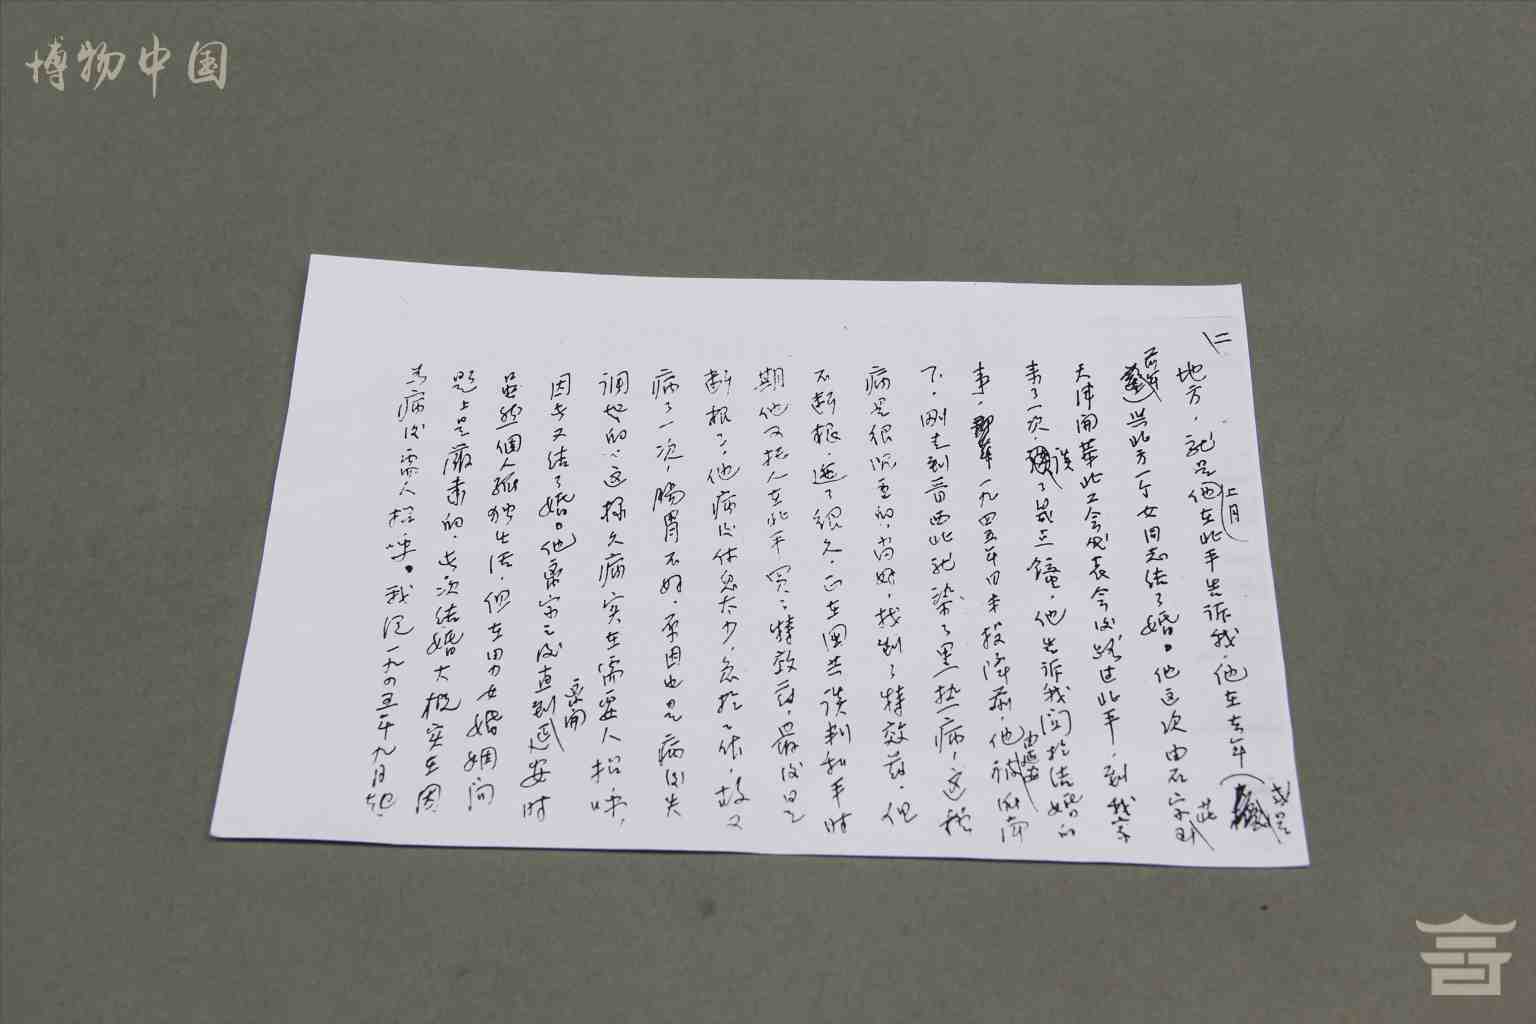 博物中国
二
地方，就是他在北平告诉我，他在去年
或是
上月
与北方一个女同志结了婚。他这次由石家
天津开华北工会代表会后路过北平，到我家
来了一次，谈了些，他告诉我关于结婚的
事。一九四五年日本投降前，他被派南
由延安
下，刚走到晋西北就染了黑热病，这种
病是很沉重的，尚好，找到了特效药，但
不断根，迁了很久，正在国共谈判和平时
期他又托人在北平买了特效药，最后是
断根了，他病后休息太少，急于工作，故又
病了一次，肠胃不好，原因也是病后失
调理的，这样久病实在需要人招呼，
因专又结了婚。他离家之后直到延安时
离开
虽然个人孤独生活，但在男女婚姻问
题上是严肃的，此次结婚大概实在因
为病后需人招呼。我从一九四五年九月起